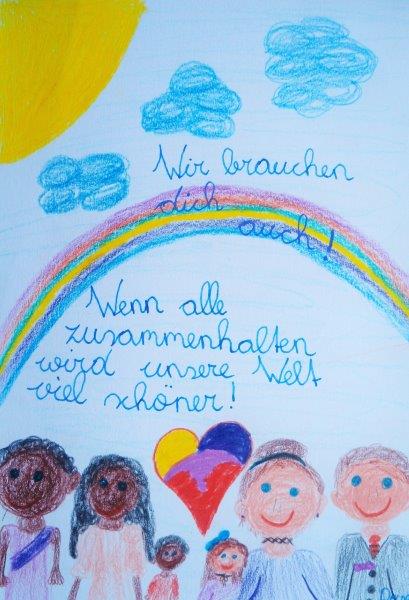 Wir brauchen
dich auch!
Wenn alle
zusammenhalten
wird unsere Welt
viel schöner!